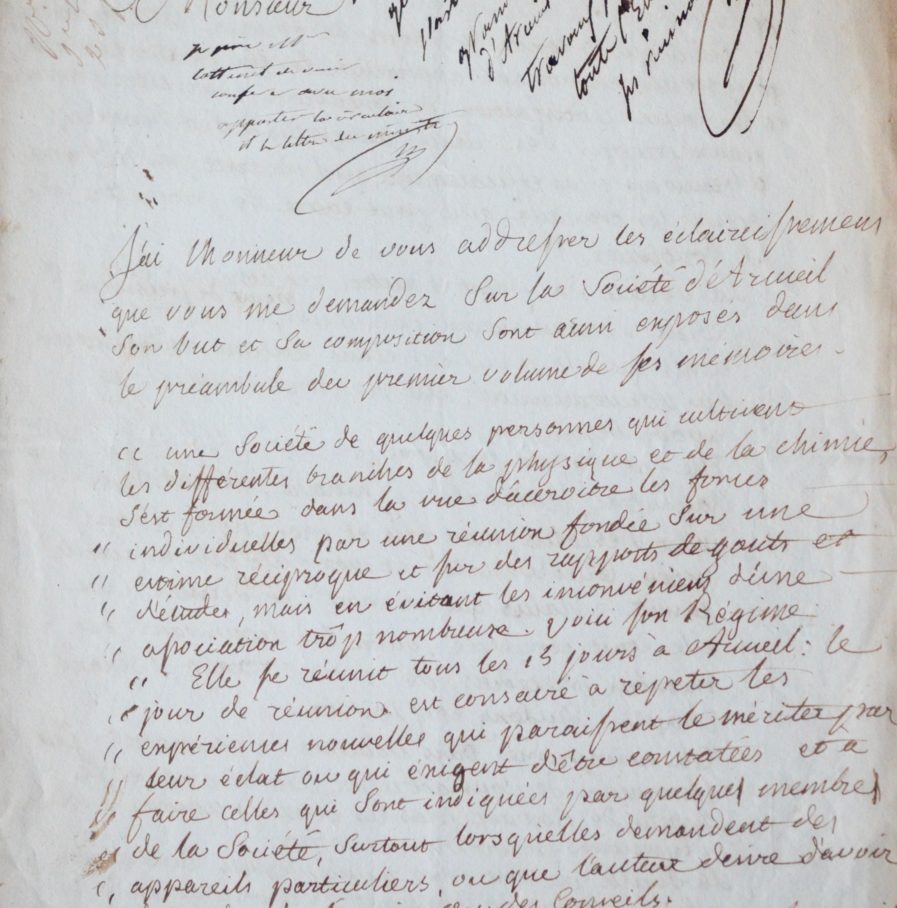 Monsieur
je prie Mr
de venir
conférer avec moi
apporter la circulaire
et la lettre du ministre
J'ai l'honneur de vous addresser les éclaircissemens
que vous me demandez sur la Société d'Arcueil
son but et sa composition sont ainsi exposés dans
le préambule du premier volume de ses mémoires.
" une Société de quelques personnes qui cultivent
les différentes branches de la physique et de la chimie,
s'est formée dans la vue d'acervitre les forces
" individuelles par une réunion fondée sur une
" estime réciproque et sur des rapports de gouts et
" d'études, mais en évitant les inconvéniens d'une
" association trop nombreuse. voici son Régime
" Elle se réunit tous les 15 jours à Arcueil: le
" jour de réunion est consacré à répeter les
" expériences nouvelles qui paraissent le mériter par
" leur éclat ou qui éxigent d'être constatées et à
" faire celles qui sont indiquées par quelques membres
" de la Société, surtout lorsqu'elles demandent des
" appareils particuliers, ou que l'auteur désire d'avoir
des Conseils.